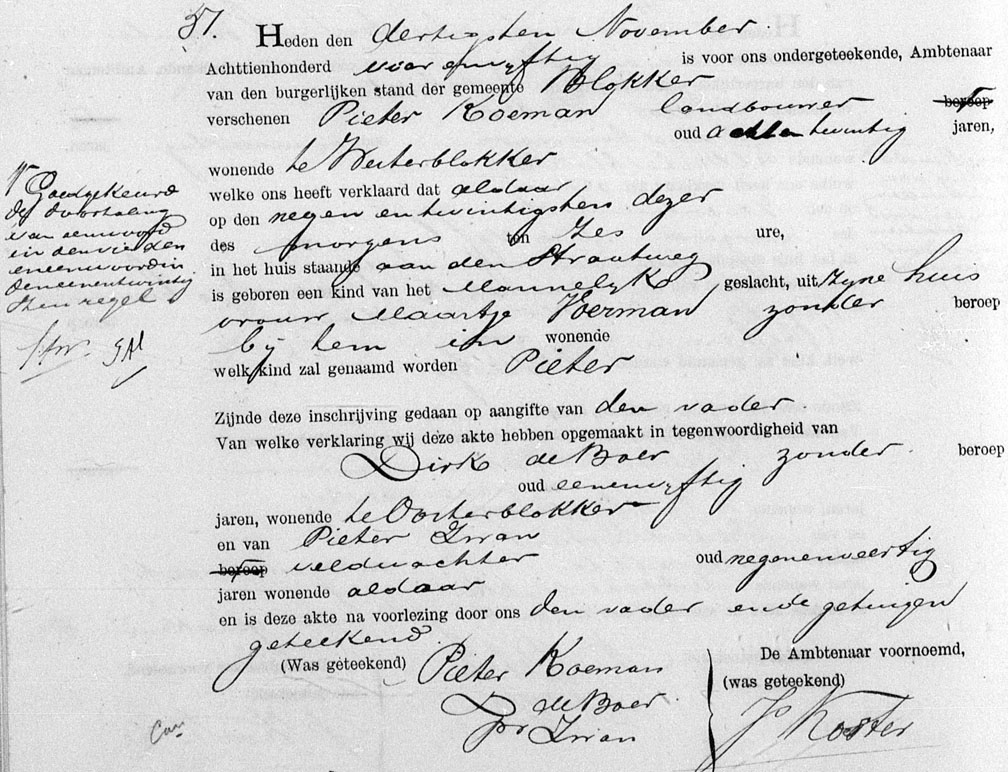 37.
Heden den dertigsten November
Achttienhonderd vier en vyftig is voor ons ondergeteekende, Ambtenaar
van den burgerlijken stand der gemeente Blokker
verschenen Pieter Koeman landbouwer beroep
oud acht en twintig jaren,
wonende te Westerblokker
welke ons heeft verklaard dat aldaar
op den negen en twintigsten dezer
des morgens ten zes ure,
in het huis staande aan den Straatweg
is geboren een kind van het Mannelyk geslacht, uit zyne huis
vrouw Maartje Voerman zonder beroep
bij hem in wonende
welk kind zal genaamd worden Pieter
Zijnde deze inschrijving gedaan op aangifte van den vader
Van welke verklaring wij deze akte hebben opgemaakt in tegenwoordigheid van
Dirk de Boer zonder beroep
oud eenenvyftig
jaren, wonende te Oosterblokker
en van Pieter Zwan
beroep veldwachter oud negenenveertig
jaren wonende aldaar
en is deze akte na voorlezing door ons den vader en de getuigen
geteekend
(Was geteekend) Pieter Koeman
de Boer
Pr Zwan
De Ambtenaar voornoemd,
(was geteekend)
Js Koster
Goedgekeurd
de doorhaling
van een woord
in den vierden
en een woord in
den eenentwintig
sten regel